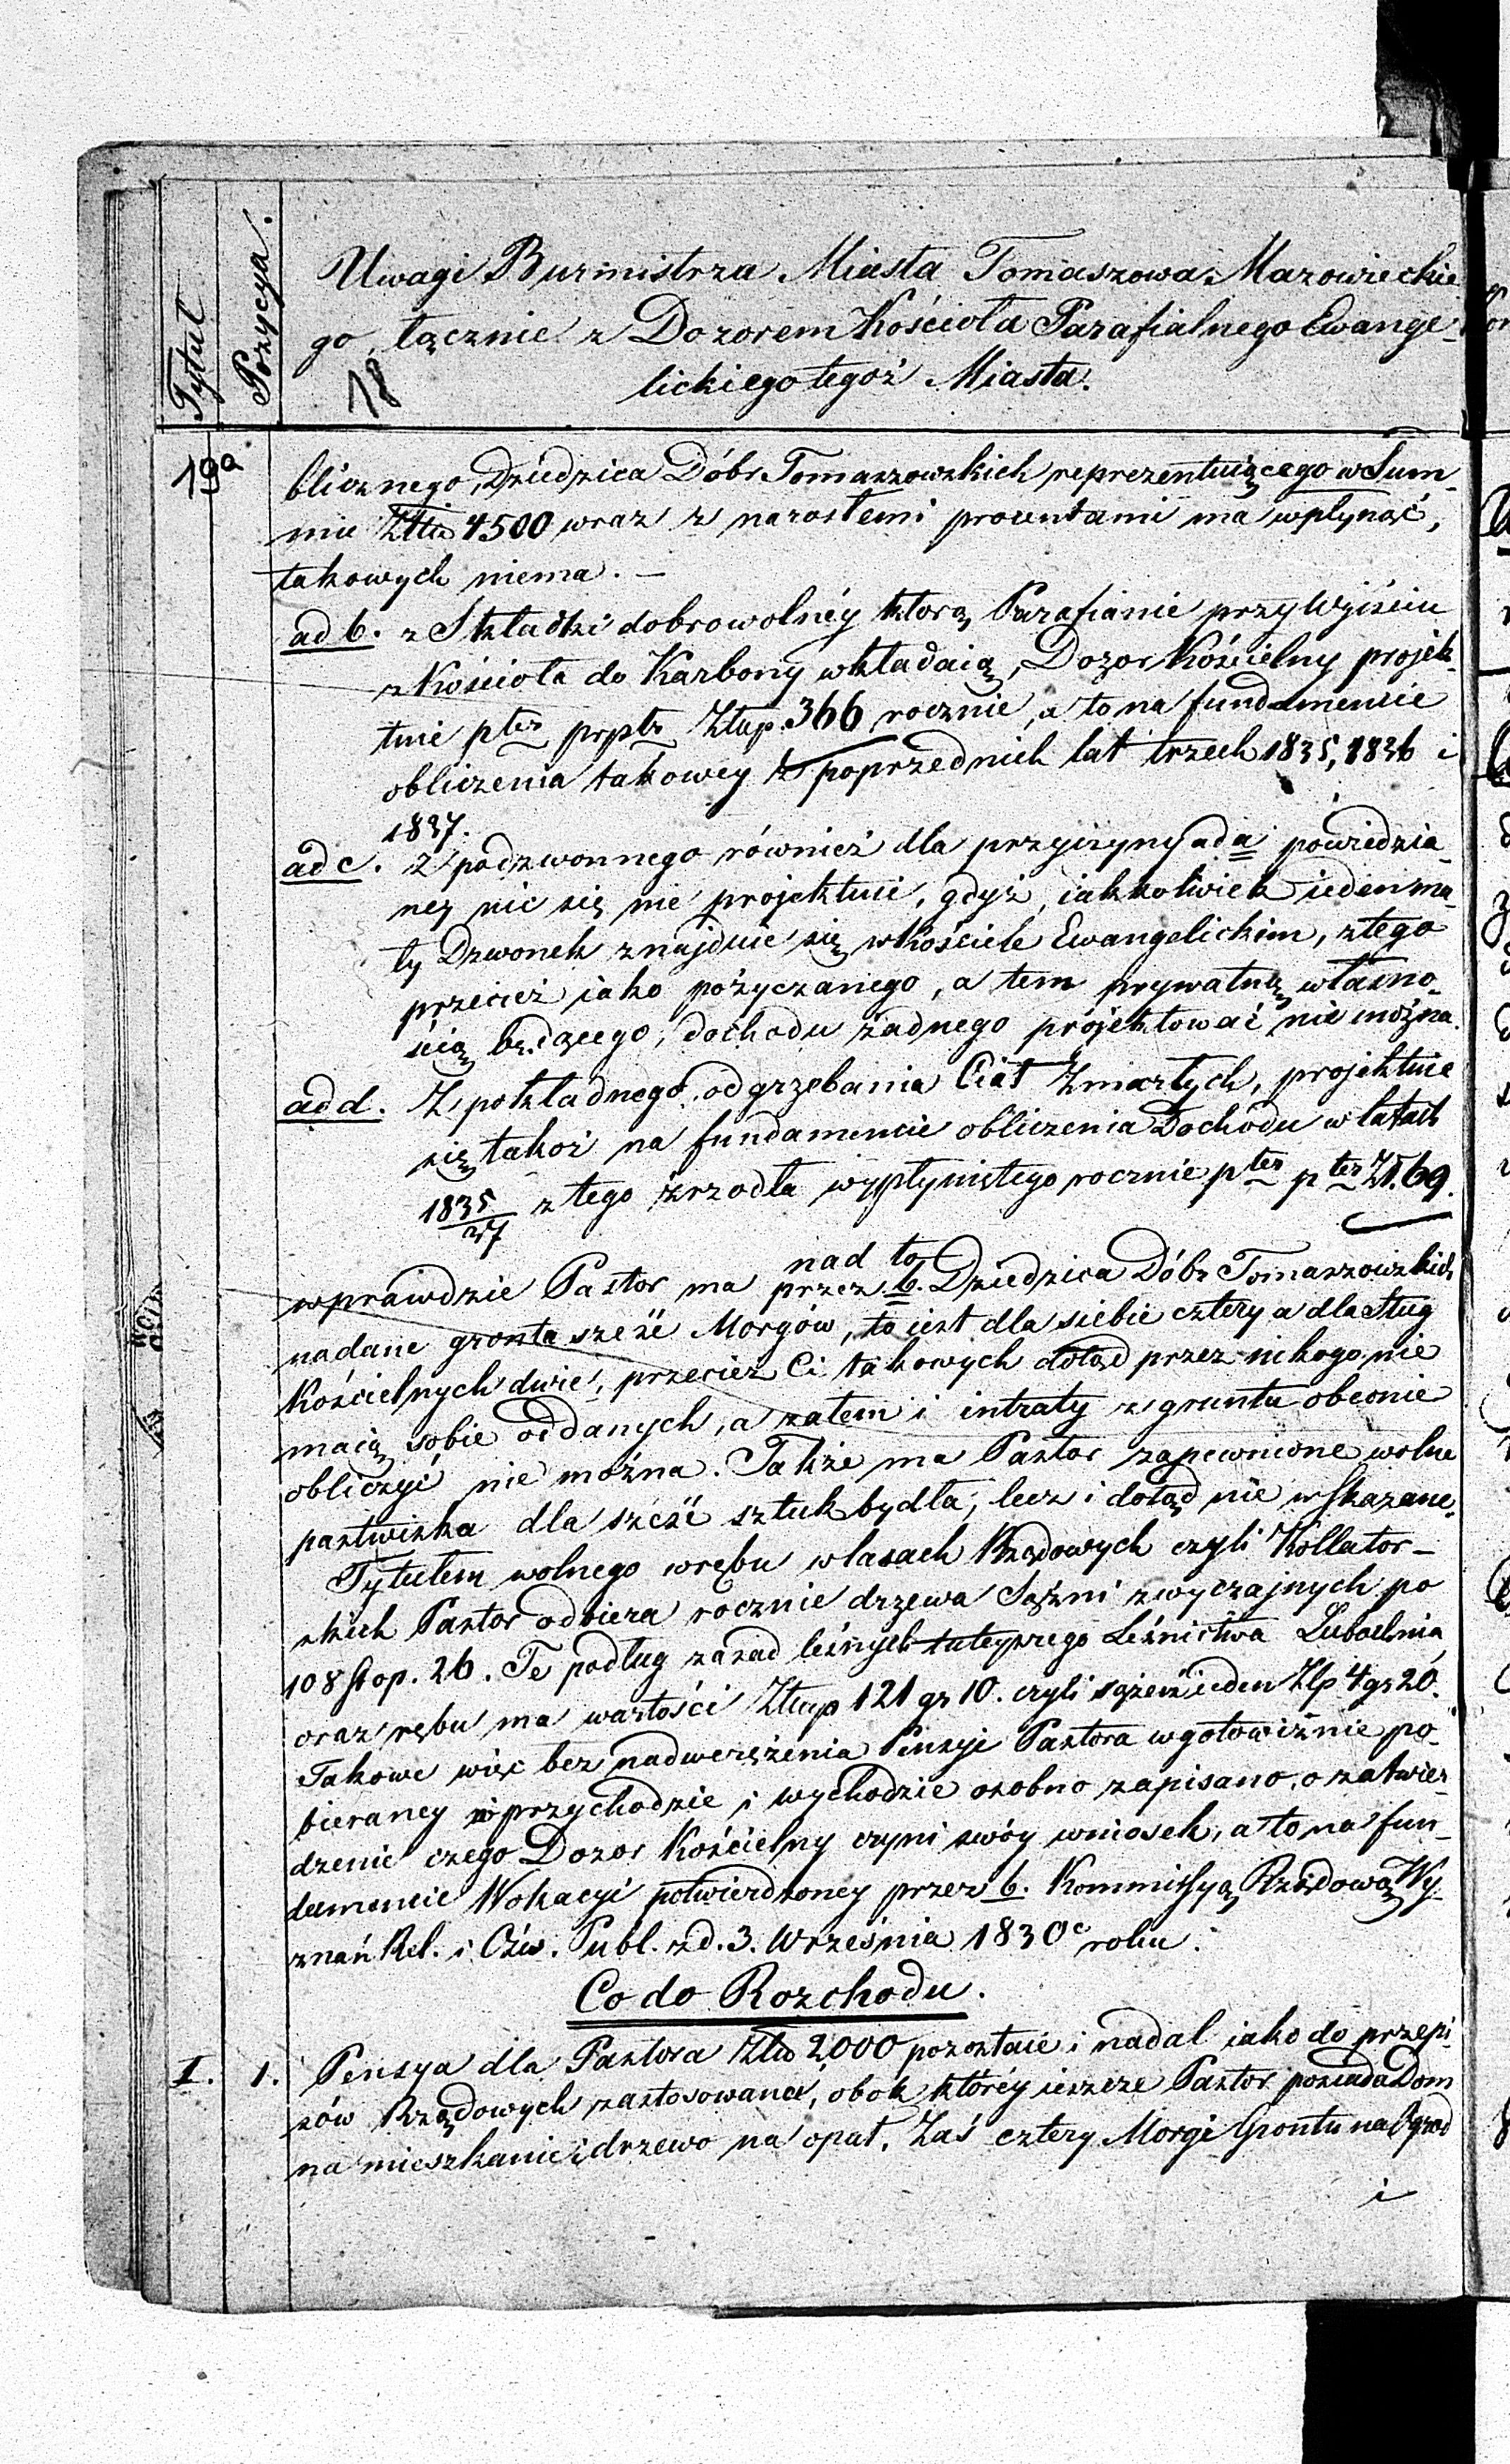 Tytuł
Pozycya.
Uwagi Burmistrza Miasta Tomaszowa Mazowieckie
go, łącznie z Dozorem Kościoła Parafialnego Ewange-
lickiego tegoż Miasta.
18
19a
blicznego, Dziedzica Dóbr Tomaszowskich reprezentuiącego w Sum-
mie 4500 wraz z narosłemi procentami ma wpłynąć,
takowych niema. —
ad b. z Składki dobrowolnéy którą Parafianie przy Wyiściu
z Kościoła do Karbony wkładaią, Dozor Kościelny projek-
tuie ptez prptr Złtp. 366 rocznie, a to na fundamencie
obliczenia takowey z poprzednich lat trzech 1835, 1836 i
1837.
ad c. z podzwonnego również dla przyczyny ad a powiedzia-
ney nic się nie projektuie, gdyż, iakkolwiek ieden ma-
ły Dzwonek znajduie się w Kościele Ewangelickim, z tego
przecież iako pożyczanego, a tem prywatną własno-
ścią będącego, dochodu żadnego projektować nie można.
ad d. Z pokładnego, od grzebania Ciał Zmarłych, projektuie
się takoż na fundamencie obliczenia Dochodu w latach
1835/37 z tego zrzodła wypłyniętego rocznie pter pter Zł. 69.
nad to
wprawdzie Pastor ma przez b. Dziedzica Dóbr Tomaszowskich
nadane gronta sześć Morgów, to iest dla siebie cztery a dla Sług
Kościelnych dwie, przecież Ci takowych dotąd przez nikogo nie
maią sobie oddanych, a zatem i intraty z gruntu obecnie
obliczyć nie można. Także ma Pastor zapewnione wolne
pastwiska dla sześć sztuk bydła, lecz i dotąd nie wskazane.
Tytułem wolnego wrębu w lasach Rządowych czyli Kollator-
skich Pastor odbiera rocznie drzewa Sążni zwyczajnych po
108 stop. 26. Te podług zasad leśnych tuteyszego Leśnictwa Lubochnia
oraz rębu ma wartości Złtp 121 gr 10. czyli sążeń ieden Złp 4 gr 20.
Takowe więc bez nadwerężenia Pensyi Pastora w gotowiźnie po-
bieraney w przychodzie i wychodzie osobno zapisano, o zatwier-
dzenie czego Dozor Kościelny czyni swóy wniosek, a to na fun-
damencie Wokacyi potwierdzoney przez b. Kommissyą Rządową Wy-
znań Rel. i Ośw. Publ. z d. 3. Września 1830c roku.
Co do Rozchodu.
I. 1. Pensya dla Pastora 2000 pozostaie i nadal iako do przepi-
sów Rządowych zastosowana, obok któréy ieszcze Pastor posiada Dom
na mieszkanie i drzewo na opał. Zaś cztery Morgi Grontu na Ogrod
i